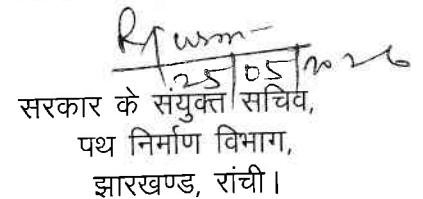 25/05/2026
सरकार के संयुक्त सचिव,
पथ निर्माण विभाग,
झारखण्ड, रांची।